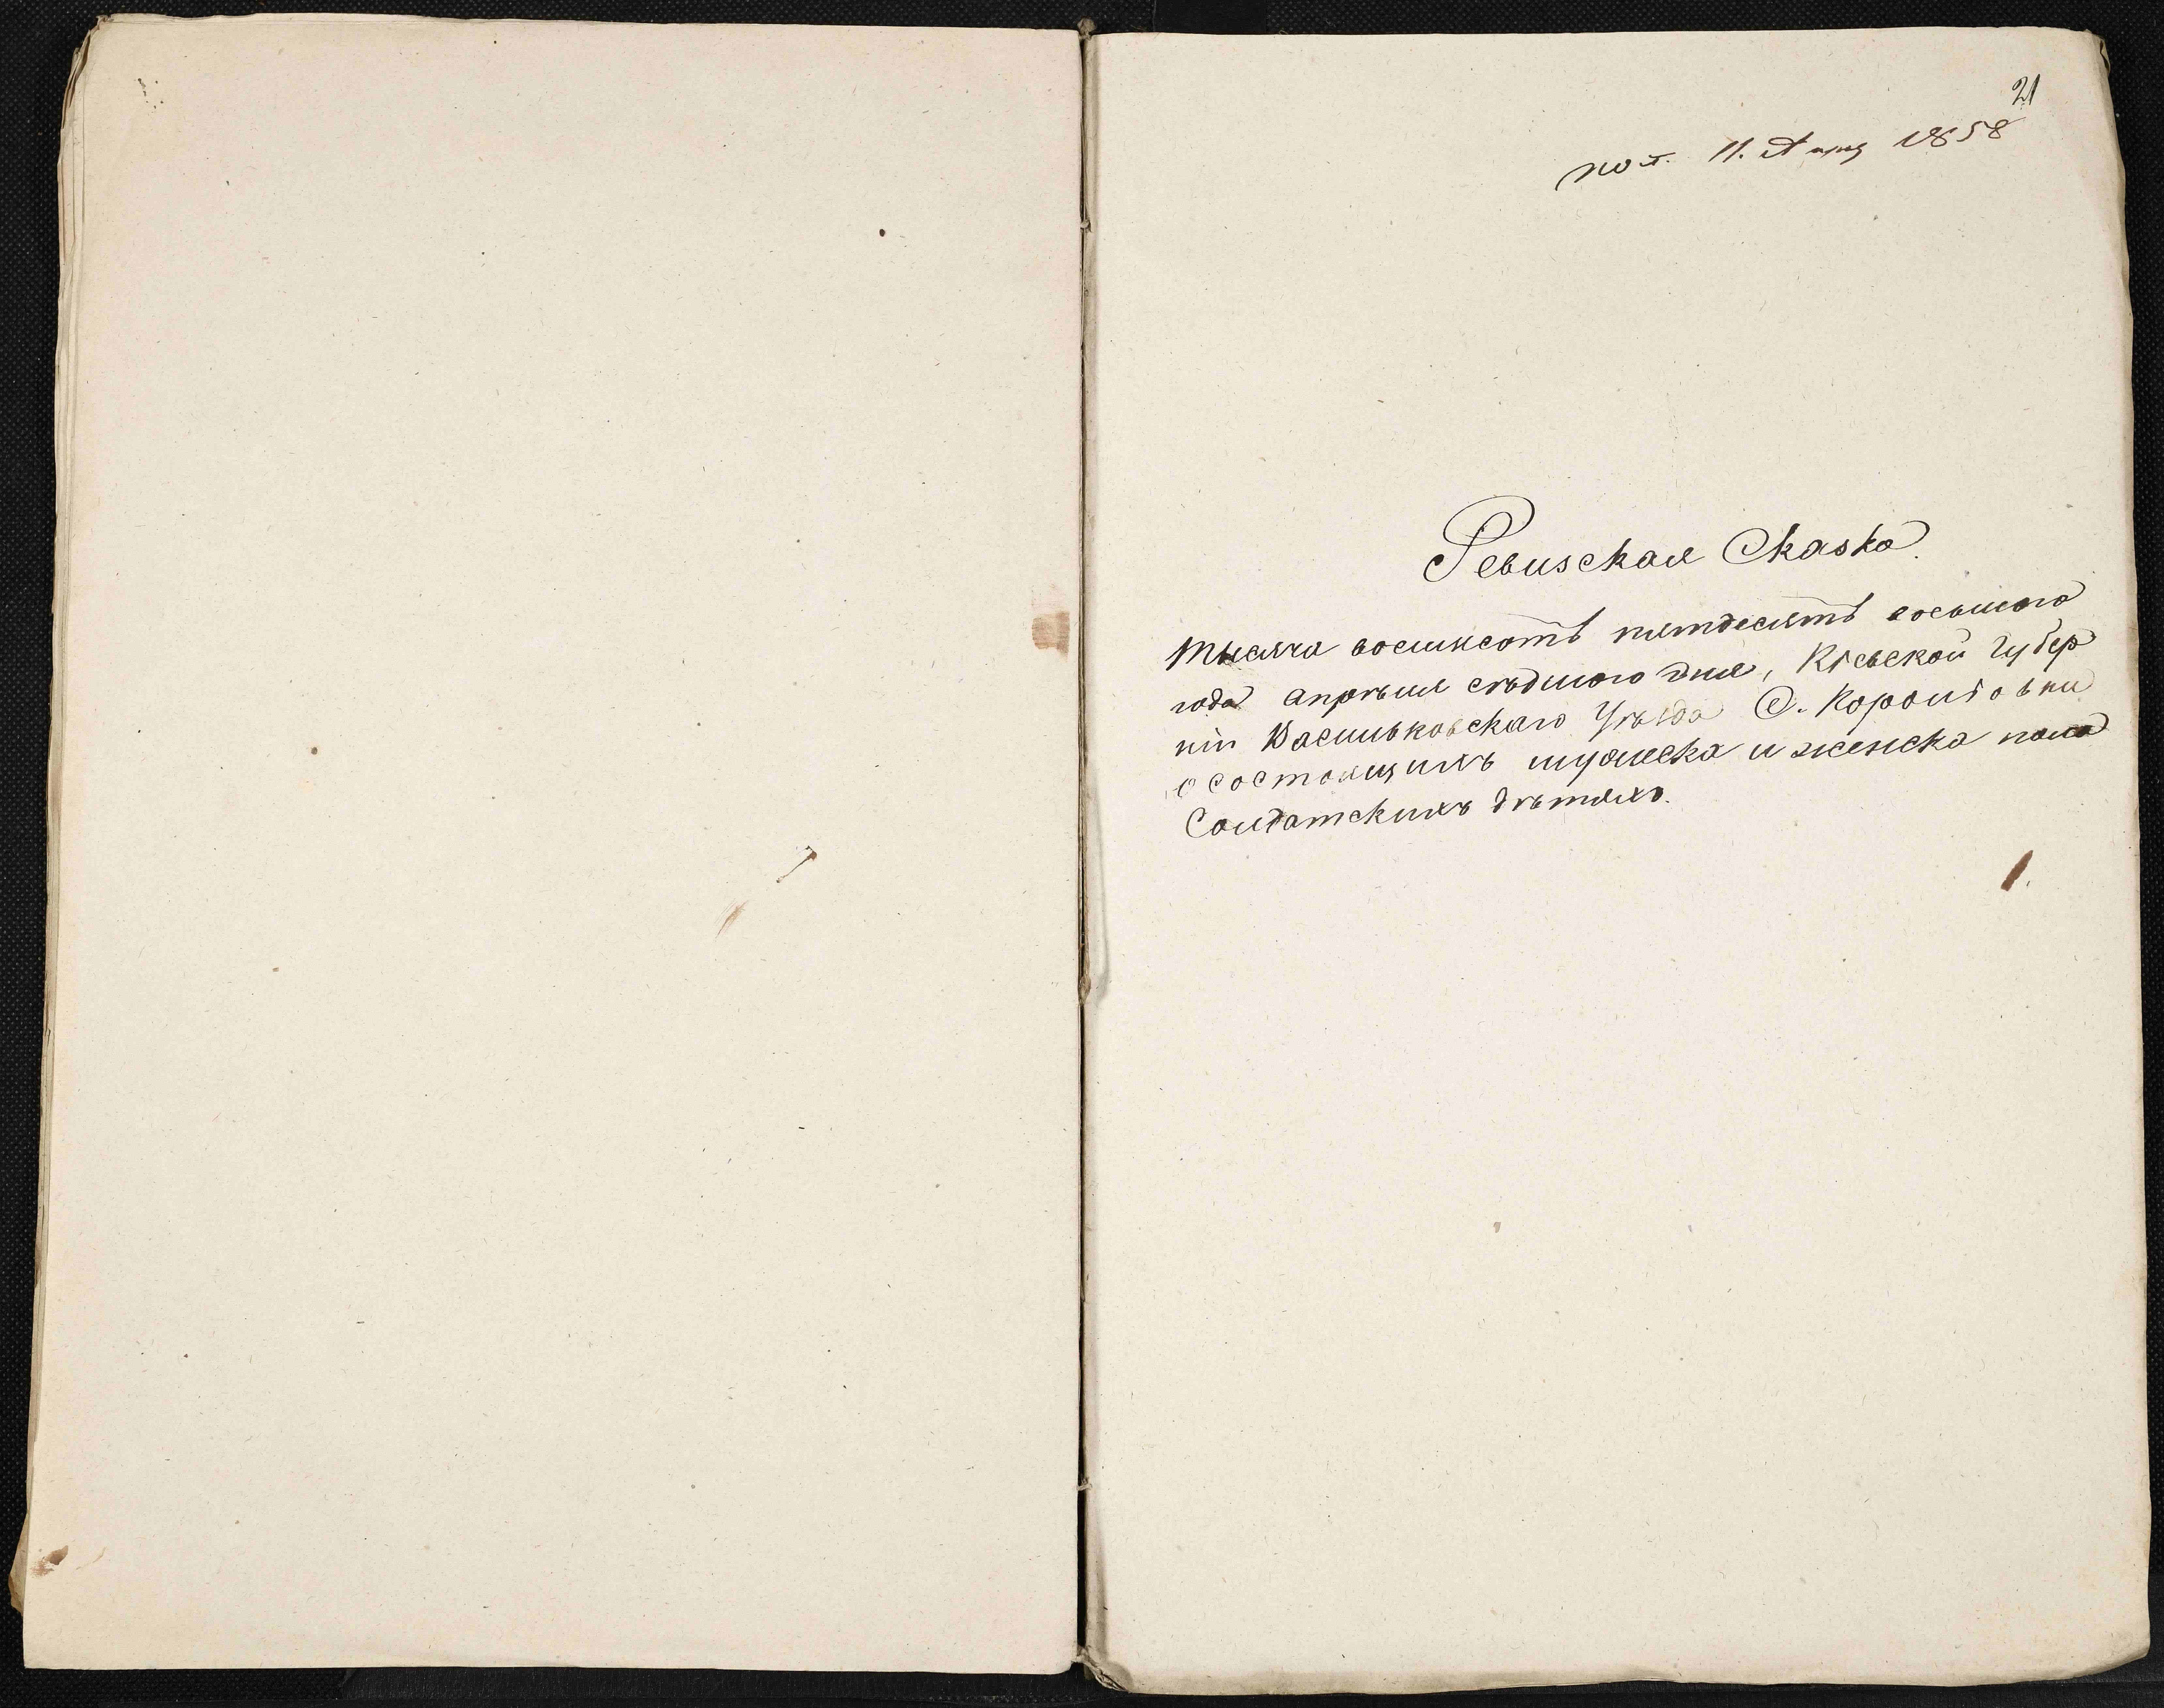 21
пол. 11. Апр 1858
Ревизская Сказка.
Тысяча восимсотъ пятдесятъ восьмого
года Апрѣля сѣдмого дня, Кіевской Губер
ніи Васильковскаго Уѣзда С.
о состоящихъ мужеска и женска пола
Солдатскихъ дѣтяхъ.
1.